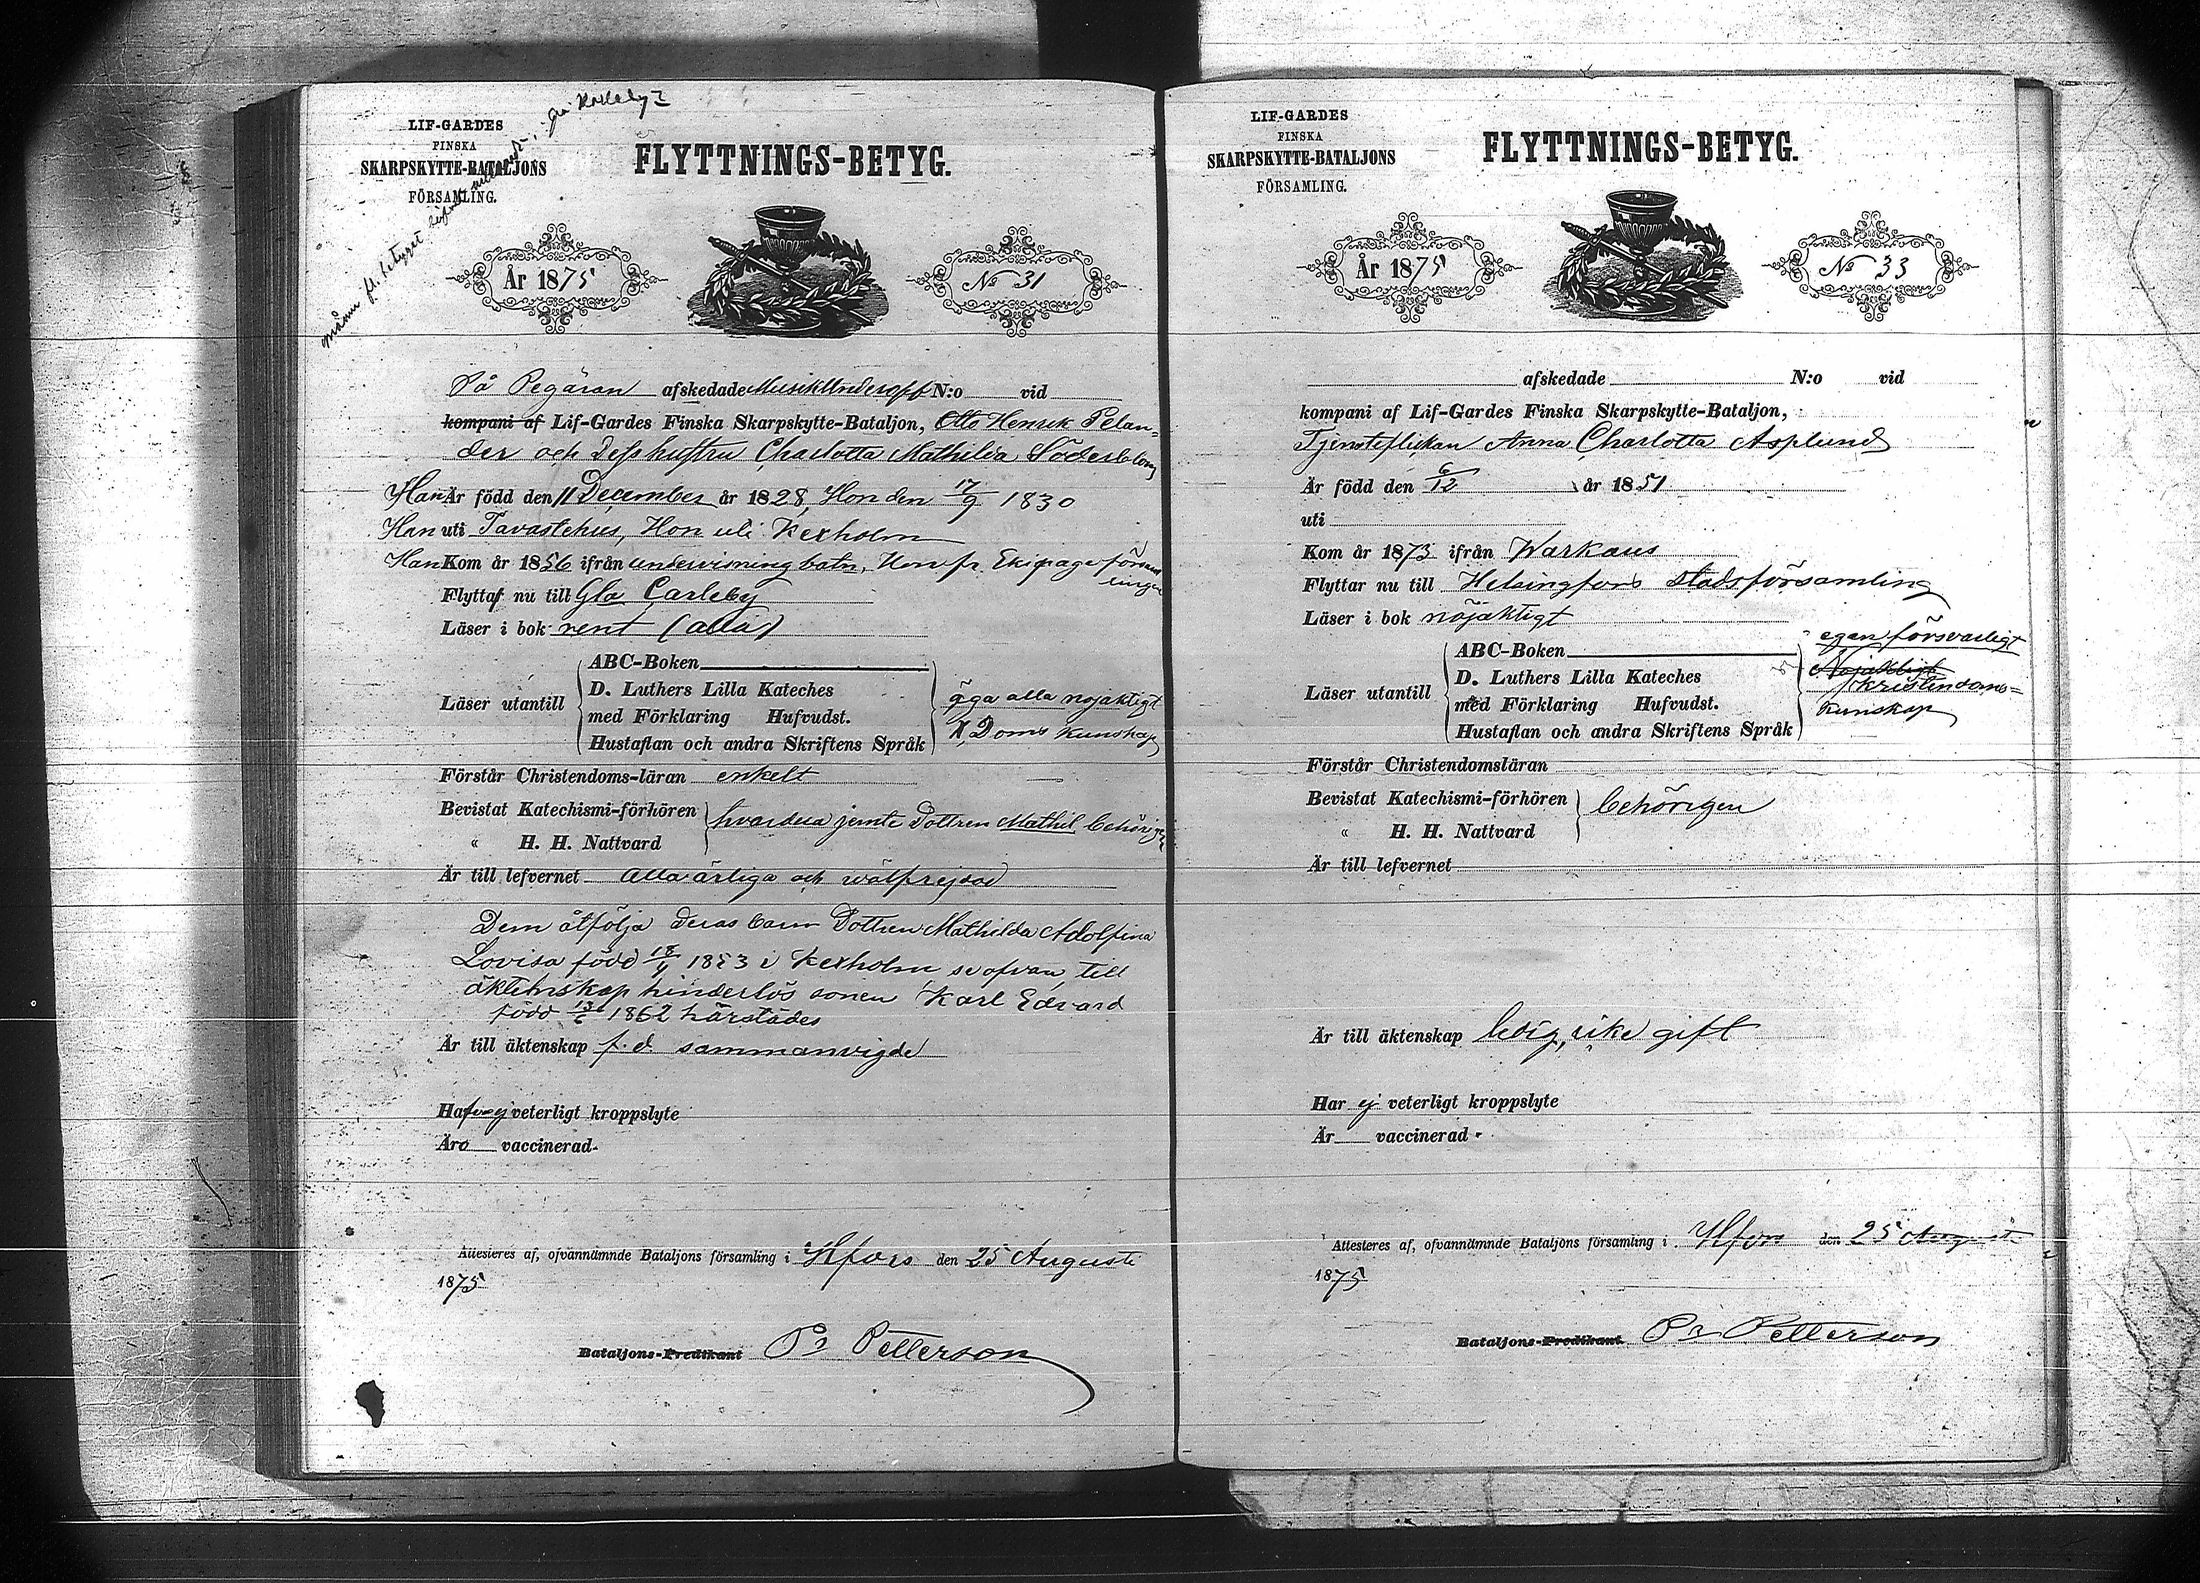 Gla Karleby
LIF-GARDES
FINSKA
SKARPSKYTTE-BATALJONS
FÖRSAMLING.
FLYTTNINGS-BETYG.
År 1875
No 31
På Begäran afskedade Musik Underoff N:o vid
kompani af Lif-Gardes Finska Skarpskytte-Bataljon, Otto Henrik Pelan-
der och Dess hustru Charlotta Mathilda Söderblom
Han Är född den 11 December år 1828, Hon den 17/9 1830
Han uti Tavastehus, Hon uti Kexholm
Han Kom år 1856 ifrån undervisning batn, Hon fr. Ekipage församlingen
Flyttaf nu till Gla Carleby
Läser i bok rent (alla)
ABC-Boken
Läser utantill
D. Luthers Lilla Kateches
med Förklaring Hufvudst.
Hustaflan och andra Skriftens Språk
äga alla nöjaktigt
X Doms kunskap
Förstår Christendoms-läran enkelt
Bevistat Katechismi-förhören
" H. H. Nattvard
hvardera jemte Dottren Mathil behörigen
Är till lefvernet Alla ärliga och wälfrejdad
Dem åtfölja deras barn Dottren Mathilda Adolfina
Lovisa född 18/4 1853 i Kexholm se ofvan till
äktenskap hinderlös sonen Karl Edvard
född 1862 härstädes
Är till äktenskap f. d. sammanvigde
Hafva ej veterligt kroppslyte
Äro vaccinerad
Attesteras af, ofvannämnde Bataljons församling i Hfors den 25 Augusti
1875
Bataljons-Predikant P Petterson
LIF-GARDES
FINSKA
SKARPSKYTTE-BATALJONS
FÖRSAMLING.
FLYTTNINGS-BETYG.
År 1875
No 33
afskedade N:o vid
kompani af Lif-Gardes Finska Skarpskytte-Bataljon,
Tjensteflickan Anna Charlotta Asplund
Är född den 6/12 år 1851
uti
Kom år 1873 ifrån Warkaus
Flyttar nu till Helsingfors stadsförsamling
Läser i bok nöjaktigt
ABC-Boken
Läser utantill
D. Luthers Lilla Kateches
med Förklaring Hufvudst.
Hustaflan och andra Skriftens Språk
egan försvarligt
Nöjaktigt
kristendoms-
kunskap
Förstår Christendomsläran
Bevistat Katechismi-förhören
" H. H. Nattvard
behörigen
Är till lefvernet
Är till äktenskap ledig, icke gift
Har ej veterligt kroppslyte
Är vaccinerad
Attesteras af, ofvannämnde Bataljons församling i Hfors den 25 Augusti
1875
Bataljons-Predikant P Petterson